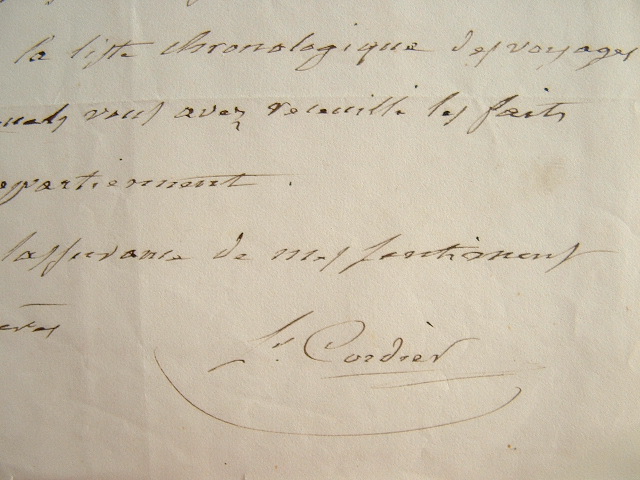 la liste chronologique des voyages
quels vous avez recueilli les faits
appartiennent.
l'assurance de mes sentiments
Cordier